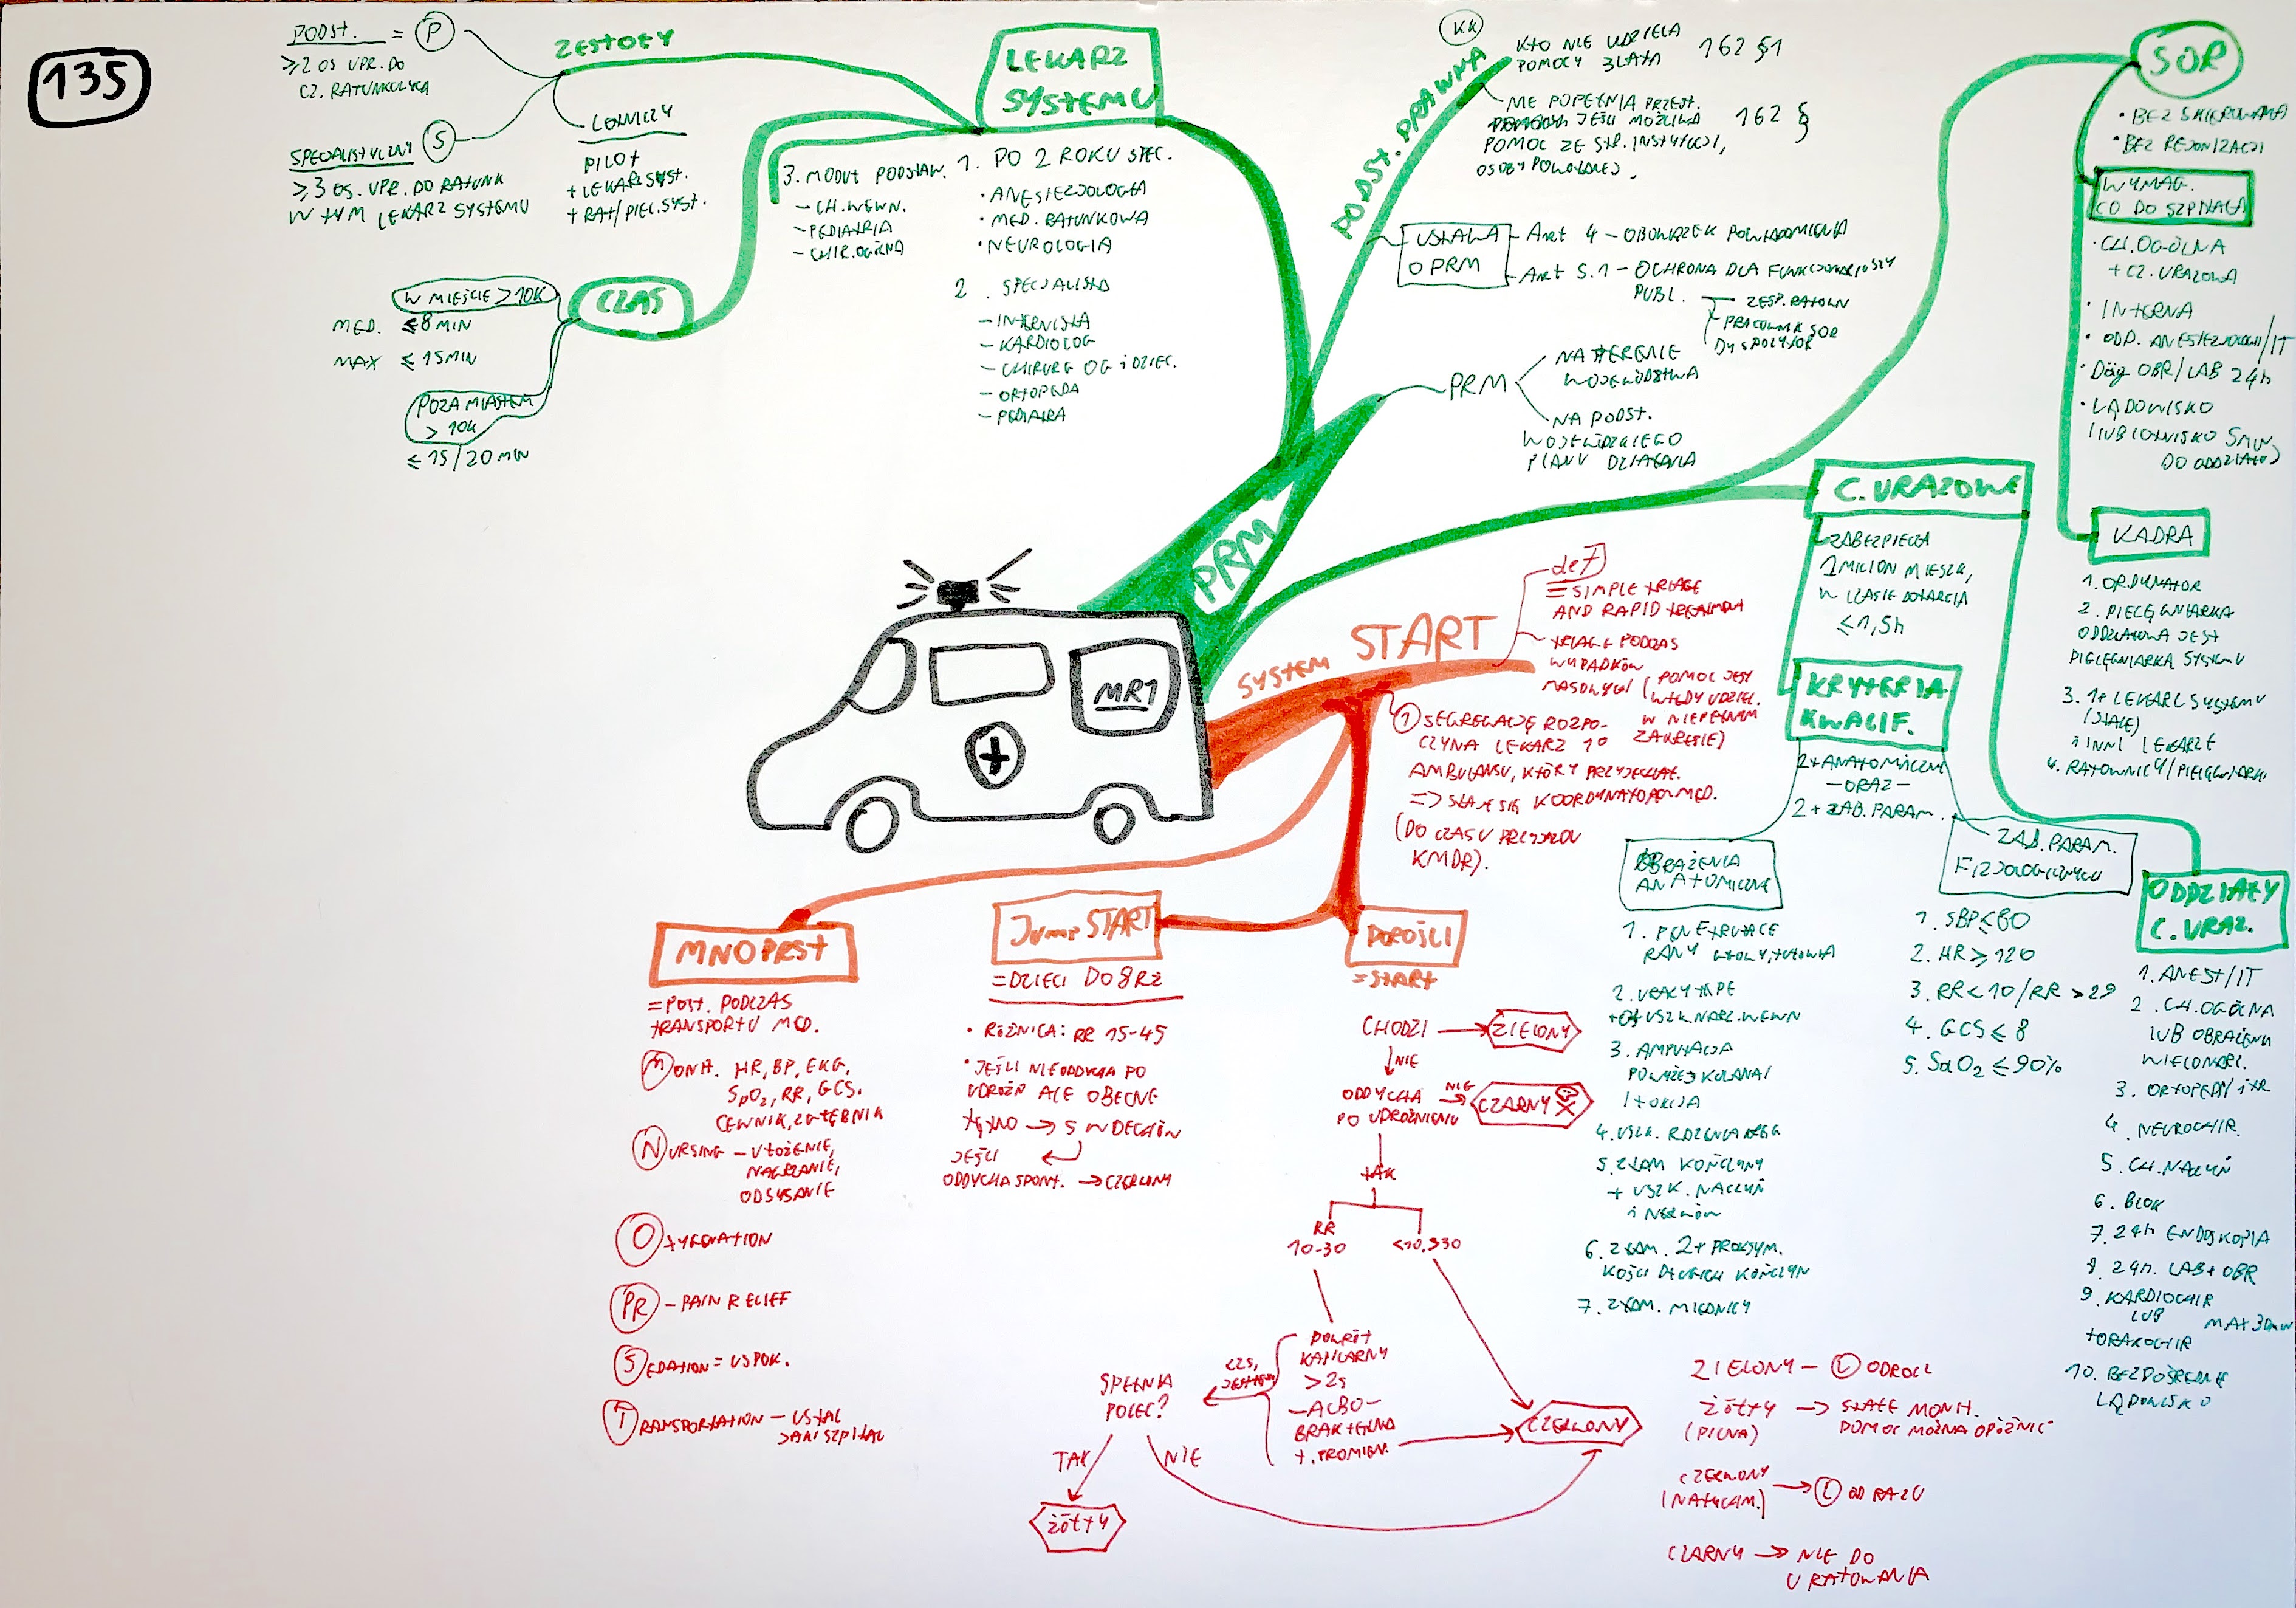 135
PODST. = P
≥2 OS UPR. DO
CZ. RATUNKOWYCH
ZESPOŁY
SPECJALISTYCZNY S
≥3 OS. UPR. DO RATUNK
W TYM LEKARZ SYSTEMU
LOTNICZY
PILOT
+ LEKARZ SYST.
+ RAT/PIEL.SYST.
LEKARZ
SYSTEMU
1. PO 2 ROKU SPEC.
• ANESTEZJOLOGIA
• MED. RATUNKOWA
• NEUROLOGIA
2. SPECJALISTA
- INTERNISTA
- KARDIOLOG
- CHIRURG OG i DZIEC.
- ORTOPEDA
- PEDIATRA
3. MODUŁ PODSTAW.
- CH.WEWN.
- PEDIATRIA
- CHIR.OGÓLNA
CZAS
W MIEŚCIE > 10K
MED. ≤8 MIN
MAX ≤ 15MIN
POZA MIASTEM
> 10K
≤ 15/20 MIN
PODST. PRAWNA
KK
KTO NIE UDZIELA
POMOCY 3 LATA
162 §1
NIE POPEŁNIA PRZEST.
JEŚLI MOŻLIWA
POMOC ZE STR. INSTYTUCJI,
OSOBY POWOŁANEJ.
162 §
USTAWA
O PRM
Art 4 - OBOWIĄZEK POWIADOMIENIA
Art 5.1 - OCHRONA DLA FUNKCJONARIUSZY
PUBL.
ZESP. RATOWN
PRACOWNIK SOR
DYSPOZYTOR
PRM
NA TERENIE
WOJEWÓDZTWA
NA PODST.
WOJEWÓDZKIEGO
PLANU DZIAŁANIA
PRM
SOR
• BEZ SKIEROWANIA
• BEZ REJONIZACJI
WYMAG.
CO DO SZPITALA
• CH.OGÓLNA
+ CZ. URAZOWA
• INTERNA
• ODD. ANESTEZJOLOGII/IT
• Diag OBR/LAB 24h
• LĄDOWISKO
(LUB LOTNISKO 5MIN
DO ODDZIAŁU)
KADRA
1. ORDYNATOR
2. PIELĘGNIARKA
ODDZIAŁOWA JEST
PIELĘGNIARKĄ SYSTEMU
3. 1+ LEKARZ SYSTEMU
(STALE)
i INNI LEKARZE
4. RATOWNICY/PIELĘGNIARKI
C. URAZOWE
ZABEZPIECZA
1 MILION MIESZK,
W CZASIE DOTARCIA
≤1,5h
KRYTERIA
KWALIF.
2+ANATOMICZNE
-ORAZ-
2+ ZAB. PARAM.
OBRAŻENIA
ANATOMICZNE
1. PENETRUJĄCE
RANY GŁOWY, TUŁOWIA
2. URAZY TĘPE
+ USZK.NARZ.WEWN
3. AMPUTACJA
POWYŻEJ KOLANA/
ŁOKCIA
4. USZK. RDZENIA KRĘG
5. ZŁAM KOŃCZYNY
+ USZK. NACZYŃ
i NERWÓW
6. ZŁAM. 2+ PROKSYM.
KOŚCI DŁUGICH KOŃCZYN
7. ZŁAM. MIEDNICY
ZAB. PARAM.
FIZJOLOGICZNYCH
1. SBP≤80
2. HR ≥ 120
3. RR < 10 / RR > 29
4. GCS ≤ 8
5. SaO2 ≤ 90%
ODDZIAŁY
C. URAZ.
1. ANEST/IT
2. CH.OGÓLNA
LUB OBRAŻENIA
WIELONARZ.
3. ORTOPEDII i TR
4. NEUROCHIR.
5. CH.NACZYŃ
6. BLOK
7. 24h ENDOSKOPIA
8. 24h. LAB + OBR
9. KARDIOCHIR
LUB
TORAKOCHIR
MAX 30MIN
10. BEZPOŚREDNIE
LĄDOWISKO
MR1
SYSTEM START
def
= SIMPLE TRIAGE
AND RAPID TREATMENT
TRIAGE PODCZAS
WYPADKÓW
MASOWYCH (POMOC JEST
WTEDY UDZIEL.
W NIEPEŁNYM
ZAKRESIE)
1 SEGREGACJĘ ROZPO-
CZYNA LEKARZ 1°
AMBULANSU, KTÓRY PRZYJECHAŁ.
=> STAJE SIĘ KOORDYNATOREM MED.
(DO CZASU PRZYJAZDU
KMDR).
MNOPRST
=POST. PODCZAS
TRANSPORTU MED.
MONIT. HR, BP, EKG,
SpO2, RR, GCS.
CEWNIK, ZGŁĘBNIK
NURSING - UŁOŻENIE,
NAGRZANIE,
ODSYSANIE
OXYGENATION
PR - PAIN RELIEF
SEDATION = USPOK.
TRANSPORTATION - USTAL
JAKI SZPITAL
Jump START
= DZIECI DO 8 RŻ
• RÓŻNICA: RR 15-45
• JEŚLI NIE ODDYCHA PO
UDROŻN ALE OBECNE
TĘTNO → 5 WDECHÓW
JEŚLI
ODDYCHA SPONT. → CZERWONY
DOROŚLI
= START
CHODZI → ZIELONY
NIE
ODDYCHA
PO UDROŻNIENIU
NIE
CZARNY
TAK
RR
10-30
<10, >30
POWRÓT
KAPILARNY
>2s
-ALBO-
BRAK TĘTNA
T. PROMIEN.
<2s,
JEST TĘTNO
SPEŁNIA
POLEC?
TAK
NIE
ŻÓŁTY
CZERWONY
ZIELONY - L ODROCZ
ŻÓŁTY → STAŁE MONIT.
(PILNA) POMOC MOŻNA OPÓŹNIĆ
CZERWONY
(NATYCHM.) → L OD RAZU
CZARNY → NIE DO
URATOWANIA